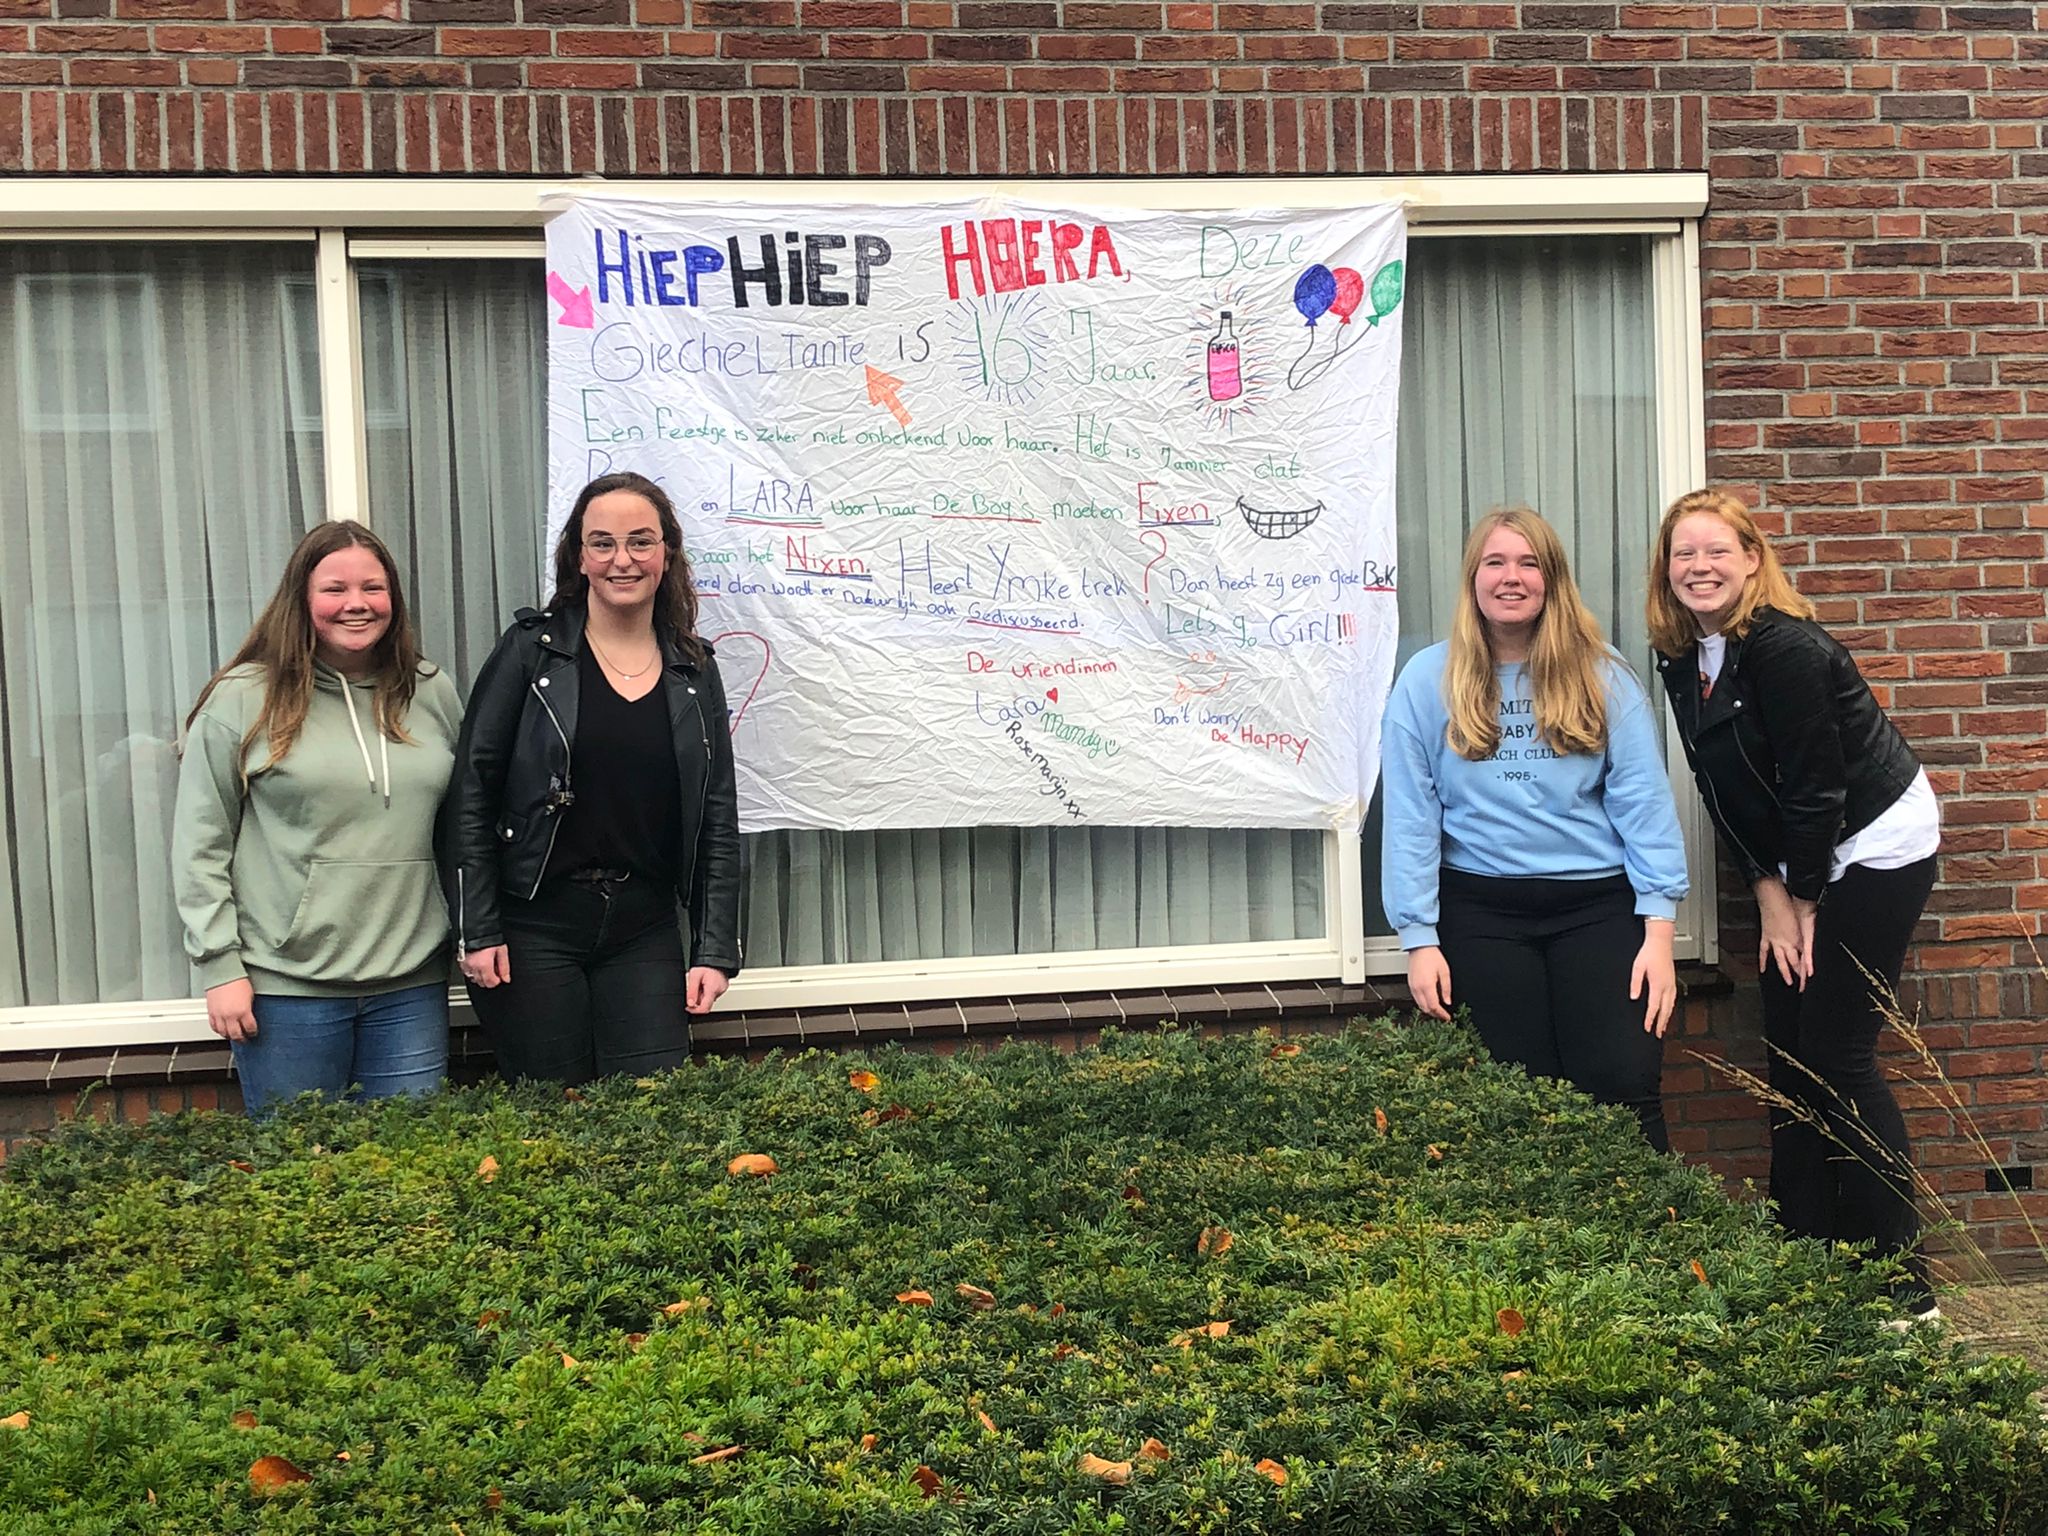 HiEP HiEP HOERA, Deze
GiecheLTANTE iS 16 Jaar.
Een feestje is zeker niet onbekend voor haar. Het is Jammer dat
en LARA voor haar De Boy's moeten Fixen,
aan het Nixen. Heeft Ymke trek? Dan heeft zij een grote BeK
dan wordt er natuurlijk ook Gediscusseerd.
Let's go Girl!!!!
De vriendinnen
Lara
Mandy
Rosemarijn xx
Don't Worry
Be Happy
MIT
BABY
EACH CLUB
·1995·